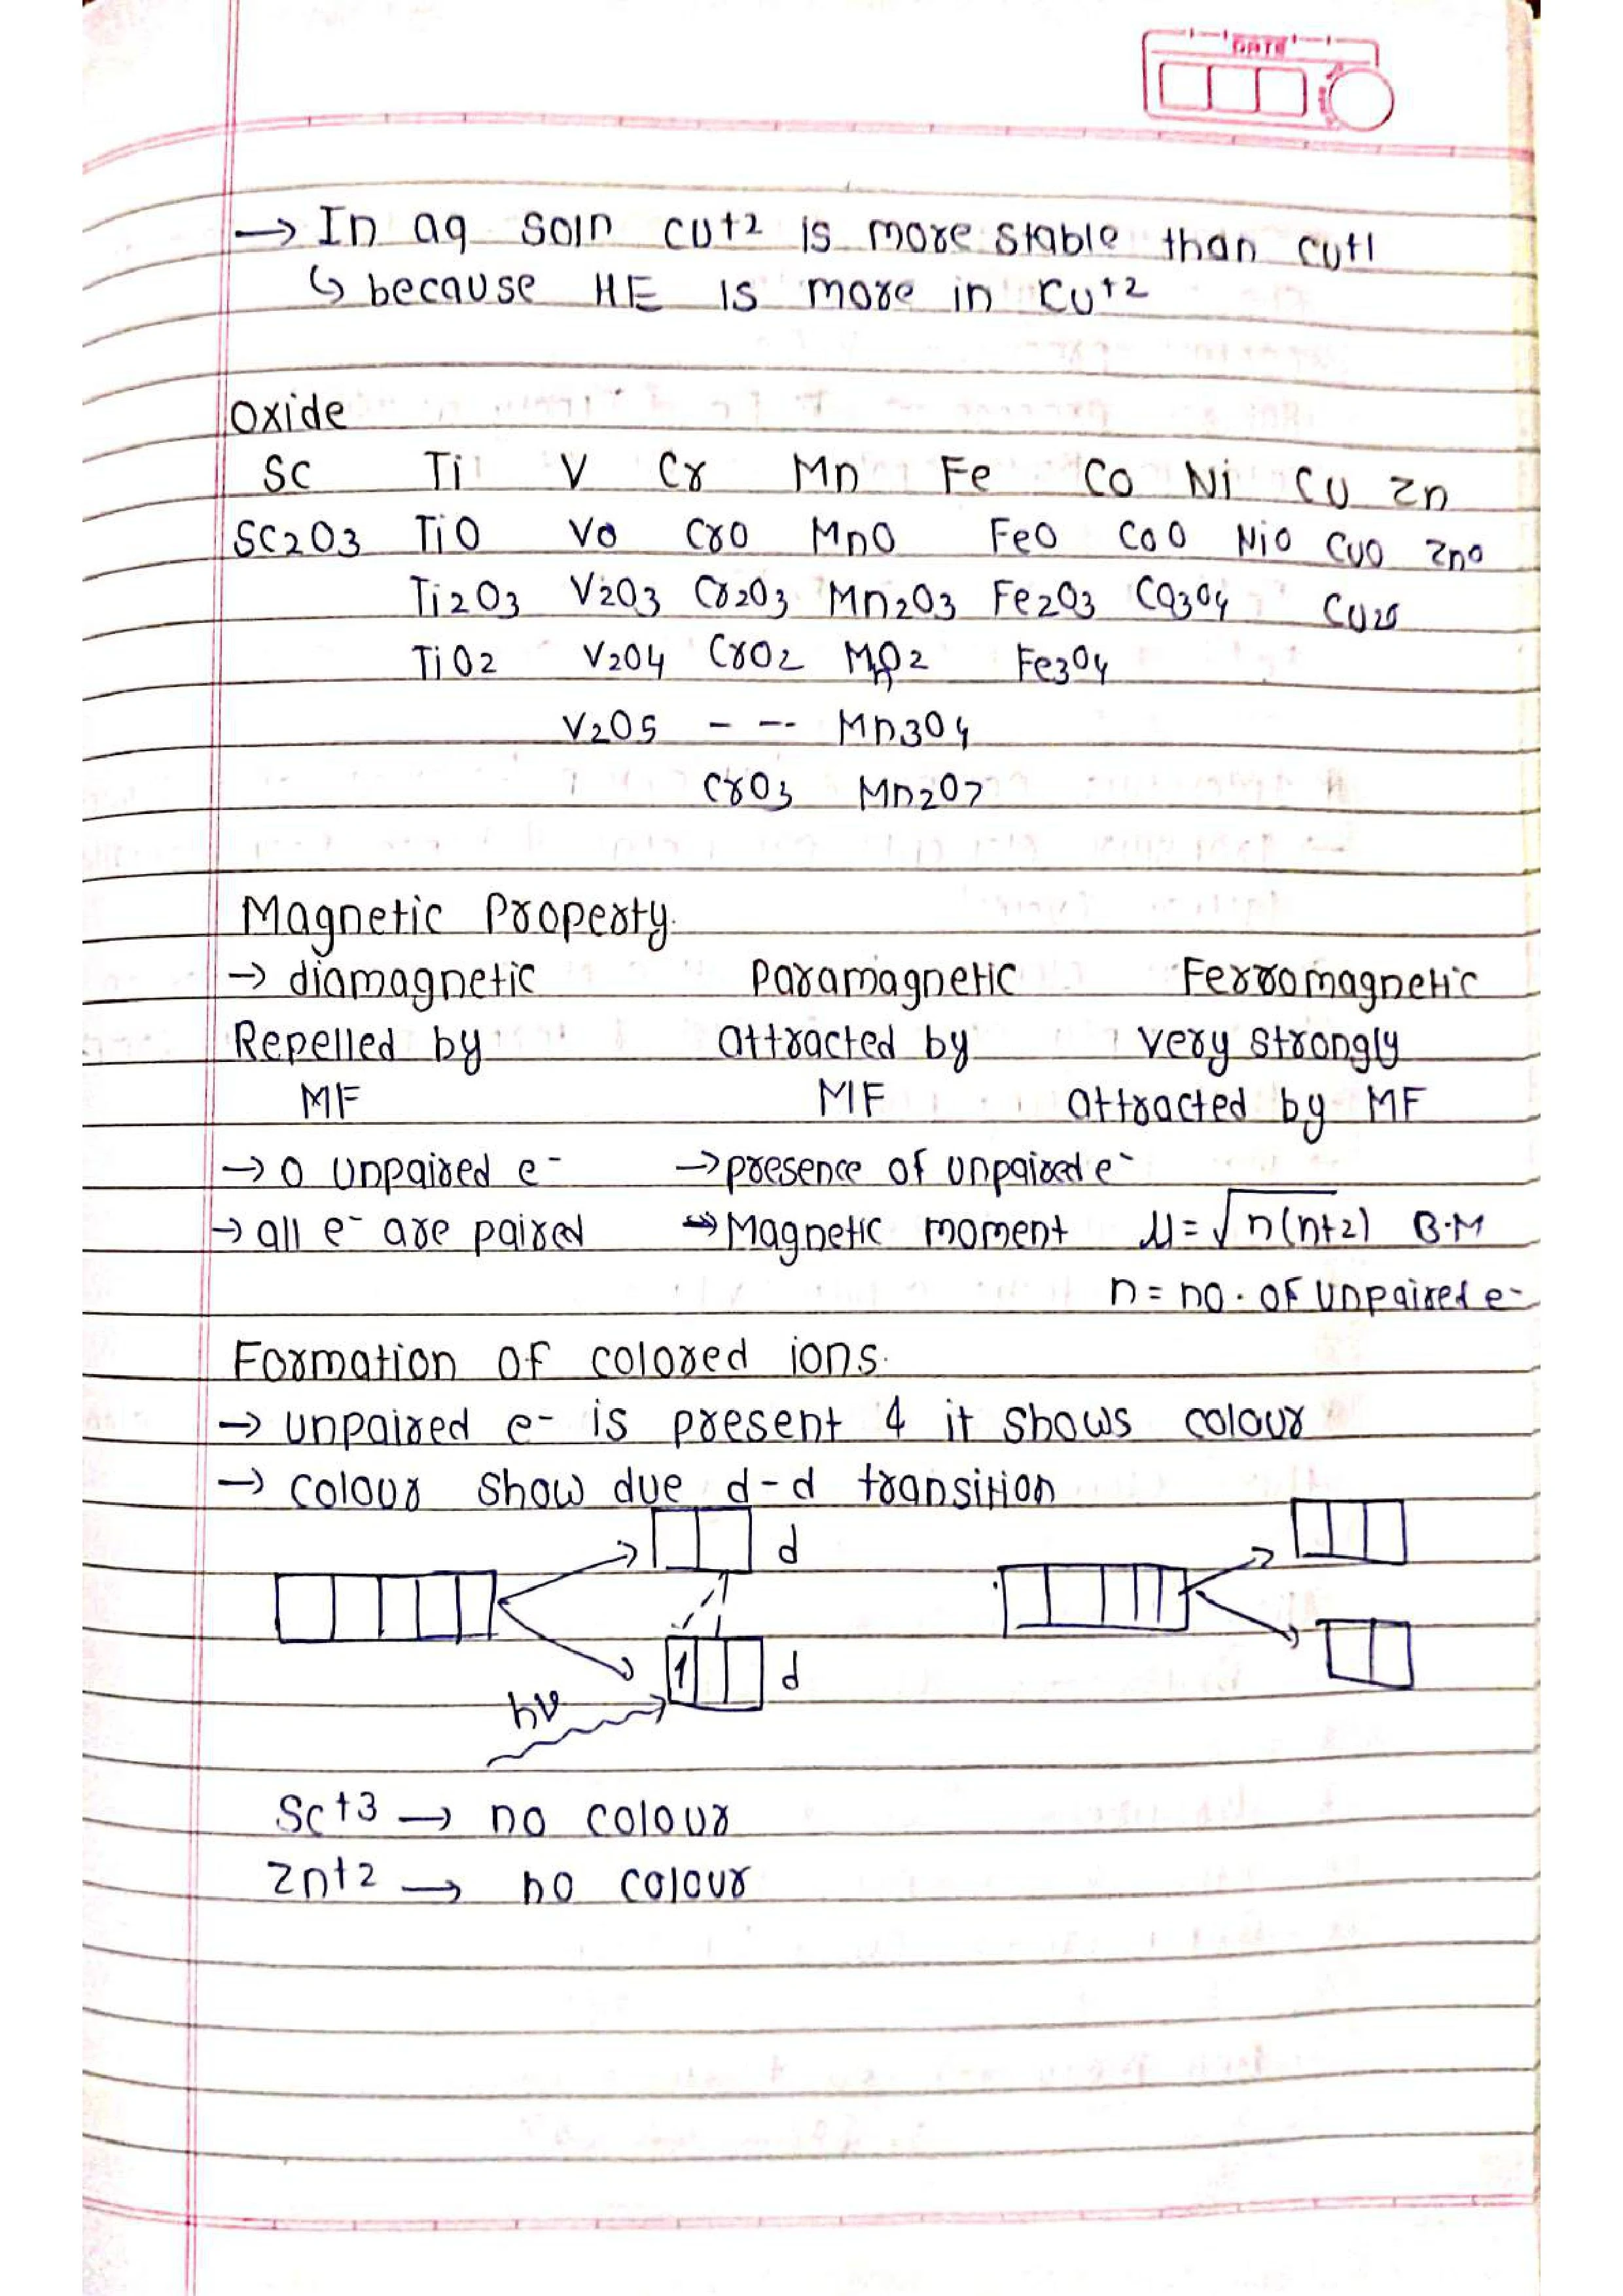 DATE
→ In aq soln cu+2 is more stable than cu+1
↳ because HE is more in cu+2
Oxide
Sc Ti V Cr Mn Fe Co Ni Cu Zn
Sc2O3 TiO VO CrO MnO FeO CoO NiO CuO ZnO
Ti2O3 V2O3 Cr2O3 Mn2O3 Fe2O3 Co3O4 Cu2O
TiO2 V2O4 CrO2 MnO2 Fe3O4
V2O5 - -- Mn3O4
CrO3 Mn2O7
Magnetic Property.
→ diamagnetic Paramagnetic Ferromagnetic
Repelled by attracted by very strongly
MF MF attracted by MF
→ 0 unpaired e- → presence of unpaired e-
→ all e- are paired → Magnetic moment μ=√n(n+2) B.M
n = no. of unpaired e-
Formation of colored ions.
→ unpaired e- is present & it shows colour
→ colour show due d-d transition
d
1 d
hν
Sc+3 → no colour
Zn+2 → no colour